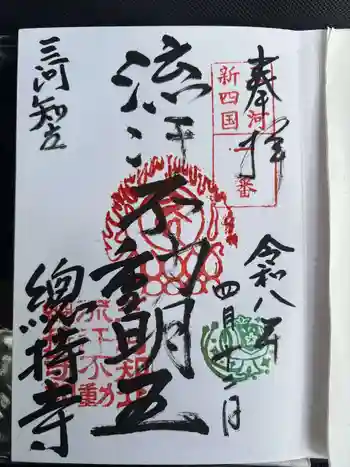 奉拝
令和八年
四月十二日
新四国
番
流汗不動明王
流汗不動
三河知立
總持寺